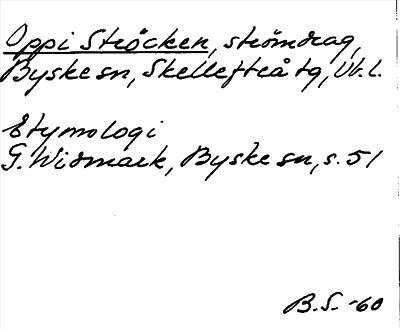 Oppi Ströcken, strömdrag,
Byske sn, Skellefteå tg, Vb. l.
Etymologi
G. Widmark, Byske sn, s. 51
B.S. -60